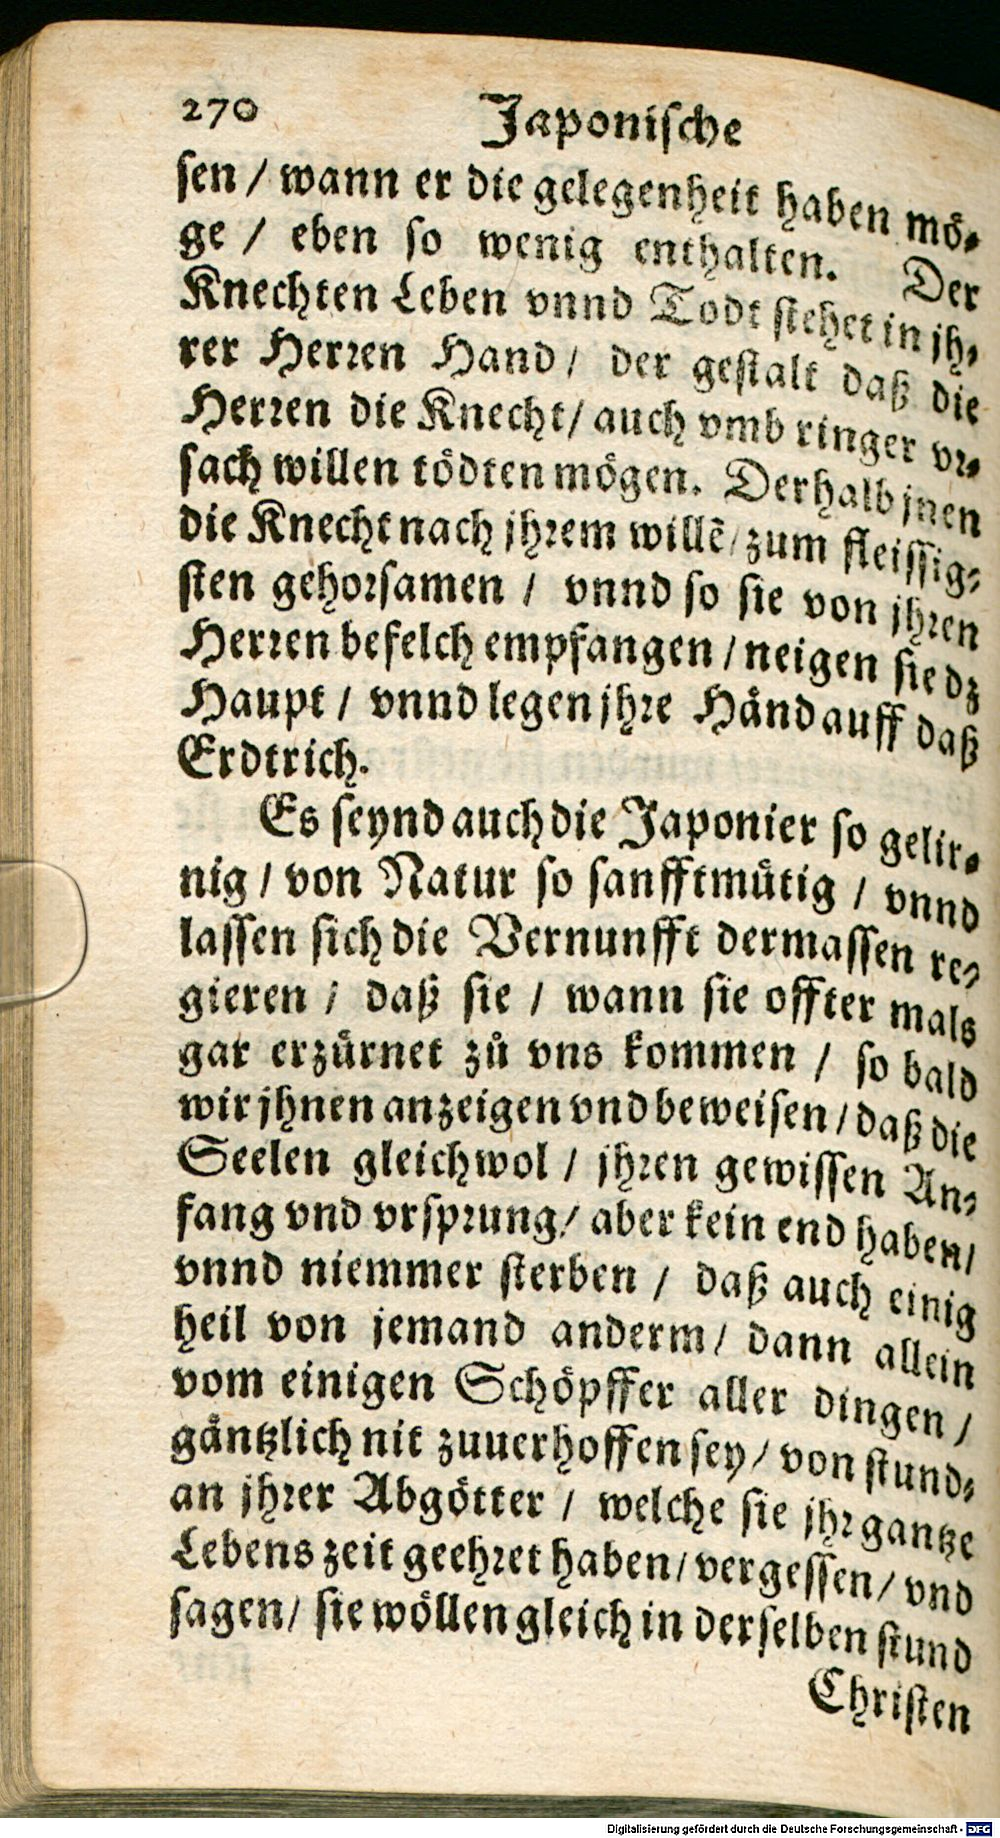 270 Japonische
sen / wann er die gelegenheit haben mö⸗
ge / eben so wenig enthalten. Der
Knechten Leben vnnd Todt stehet in jh⸗
rer Herren Hand / der gestalt daß die
Herren die Knecht / auch vmb ringer vr⸗
sach willen tödten mögen. Derhalb jnen
die Knecht nach jhrem willē / zum fleissig⸗
sten gehorsamen / vnnd so sie von jhren
Herren befelch empfangen / neigen sie dz
Haupt / vnnd legen jhre Händ auff daß
Erdtrich.
Es seynd auch die Japonier so gelir⸗
nig / von Natur so sanfftmütig / vnnd
lassen sich die Vernunfft dermassen re⸗
gieren / daß sie / wann sie offter mals
gar erzürnet zů vns kommen / so bald
wir jhnen anzeigen vnd beweisen / daß die
Seelen gleichwol / jhren gewissen An⸗
fang vnd vrsprung / aber kein end haben /
vnnd niemmer sterben / daß auch einig
heil von jemand anderm / dann allein
vom einigen Schöpffer aller dingen /
gäntzlich nit zuuerhoffen sey / von stund⸗
an jhrer Abgötter / welche sie jhr gantze
Lebens zeit geehret haben / vergessen / vnd
sagen / sie wöllen gleich in derselben stund
Christen
Digitalisierung gefördert durch die Deutsche Forschungsgemeinschaft - DFG